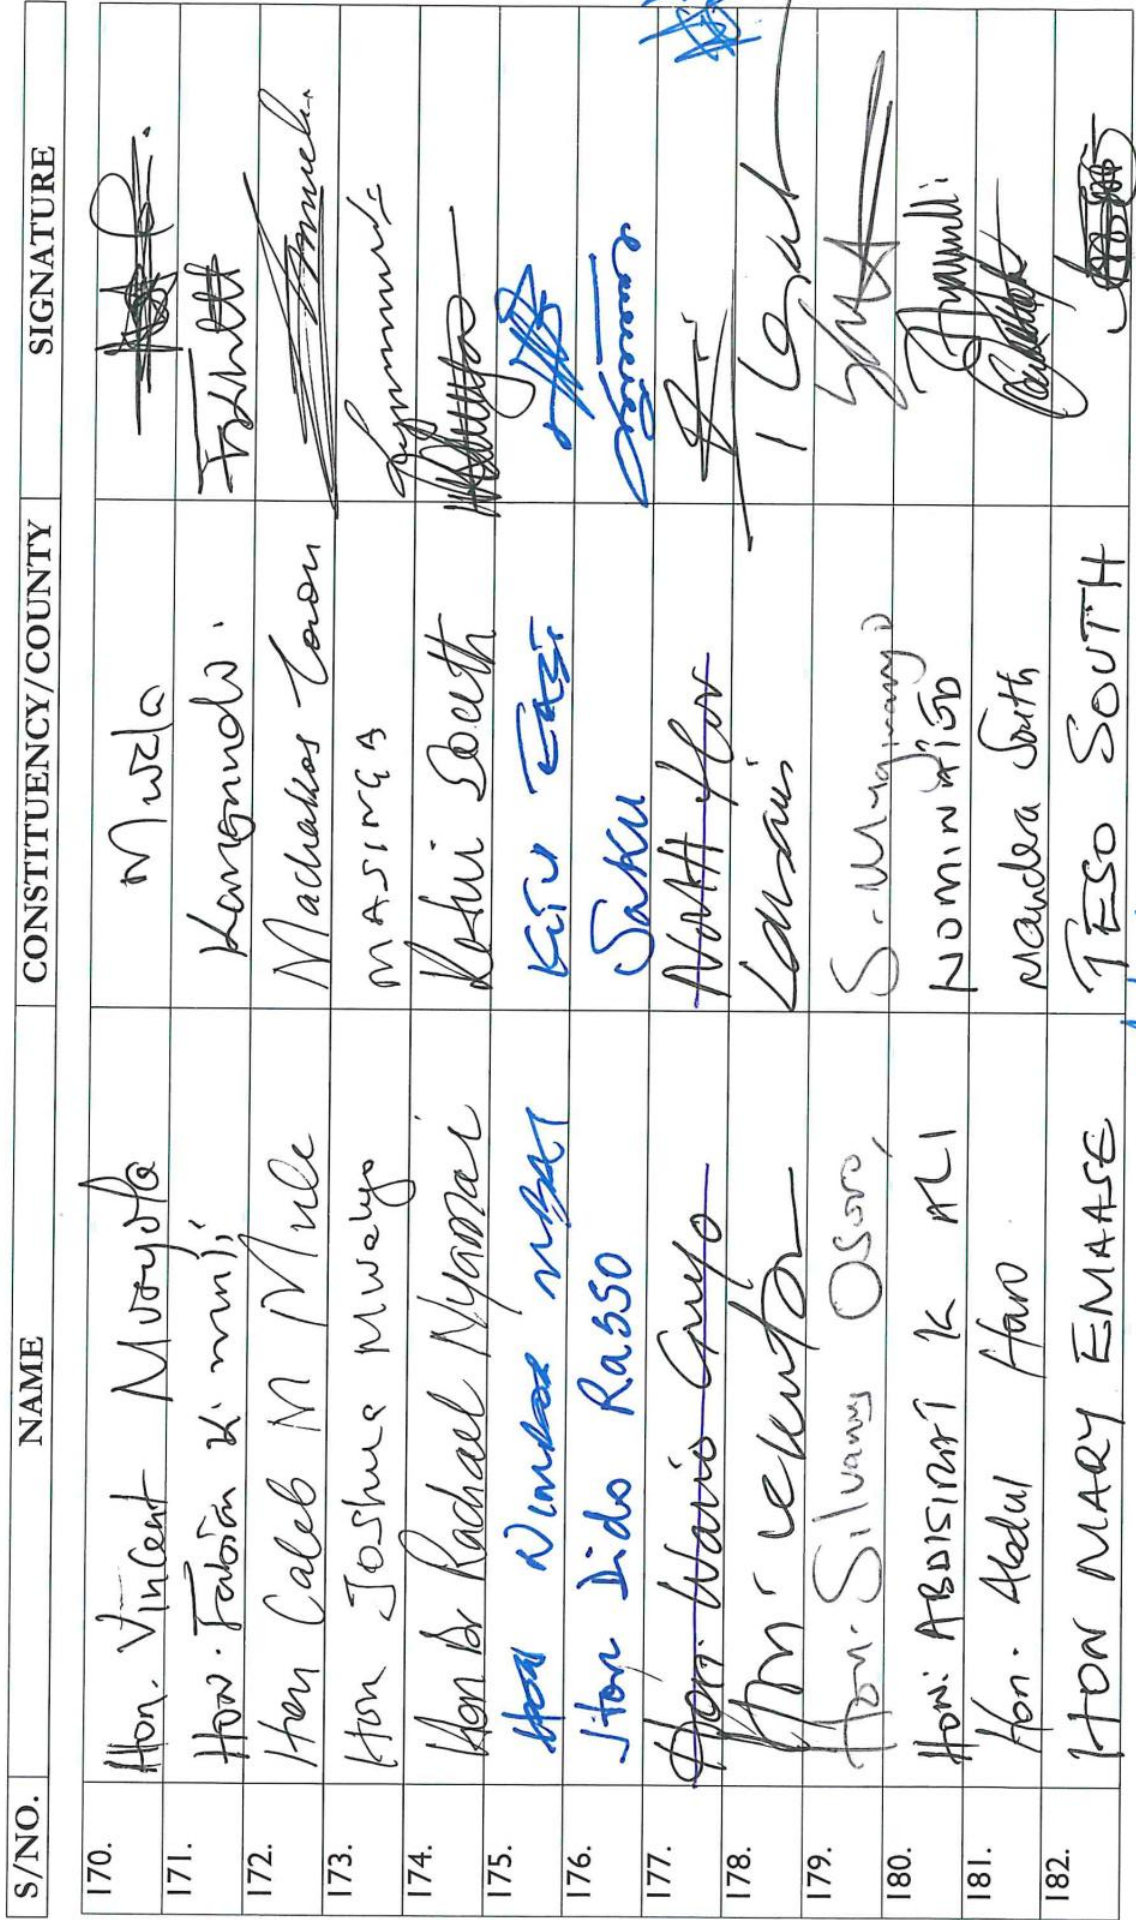 S/NO. NAME CONSTITUENCY/COUNTY SIGNATURE
170. Hon. Vincent Musyoka Mwala
171. Hon. Fabian K. muli Kangundo.
172. Hon Caleb M Mule Machakos Town
173. Hon Joshua Mwalyo MASINGA
174. Hon Dr Rachael Nyamai Kitui South
175. Hon Nimrod MBAI Kitui EAST
176. Hon Dido Rasso SAKU
177. Hon. Wario Guyo North Horr
178. Hon. Lekuton Laisamis
179. Hon. Silvanus Osoro, S. Mugirango
180. Hon. ABDISIRAT K ALI NOMINATED
181. Hon. Abdul Haro Mandera South
182. HON MARY EMAASE TESO SOUTH